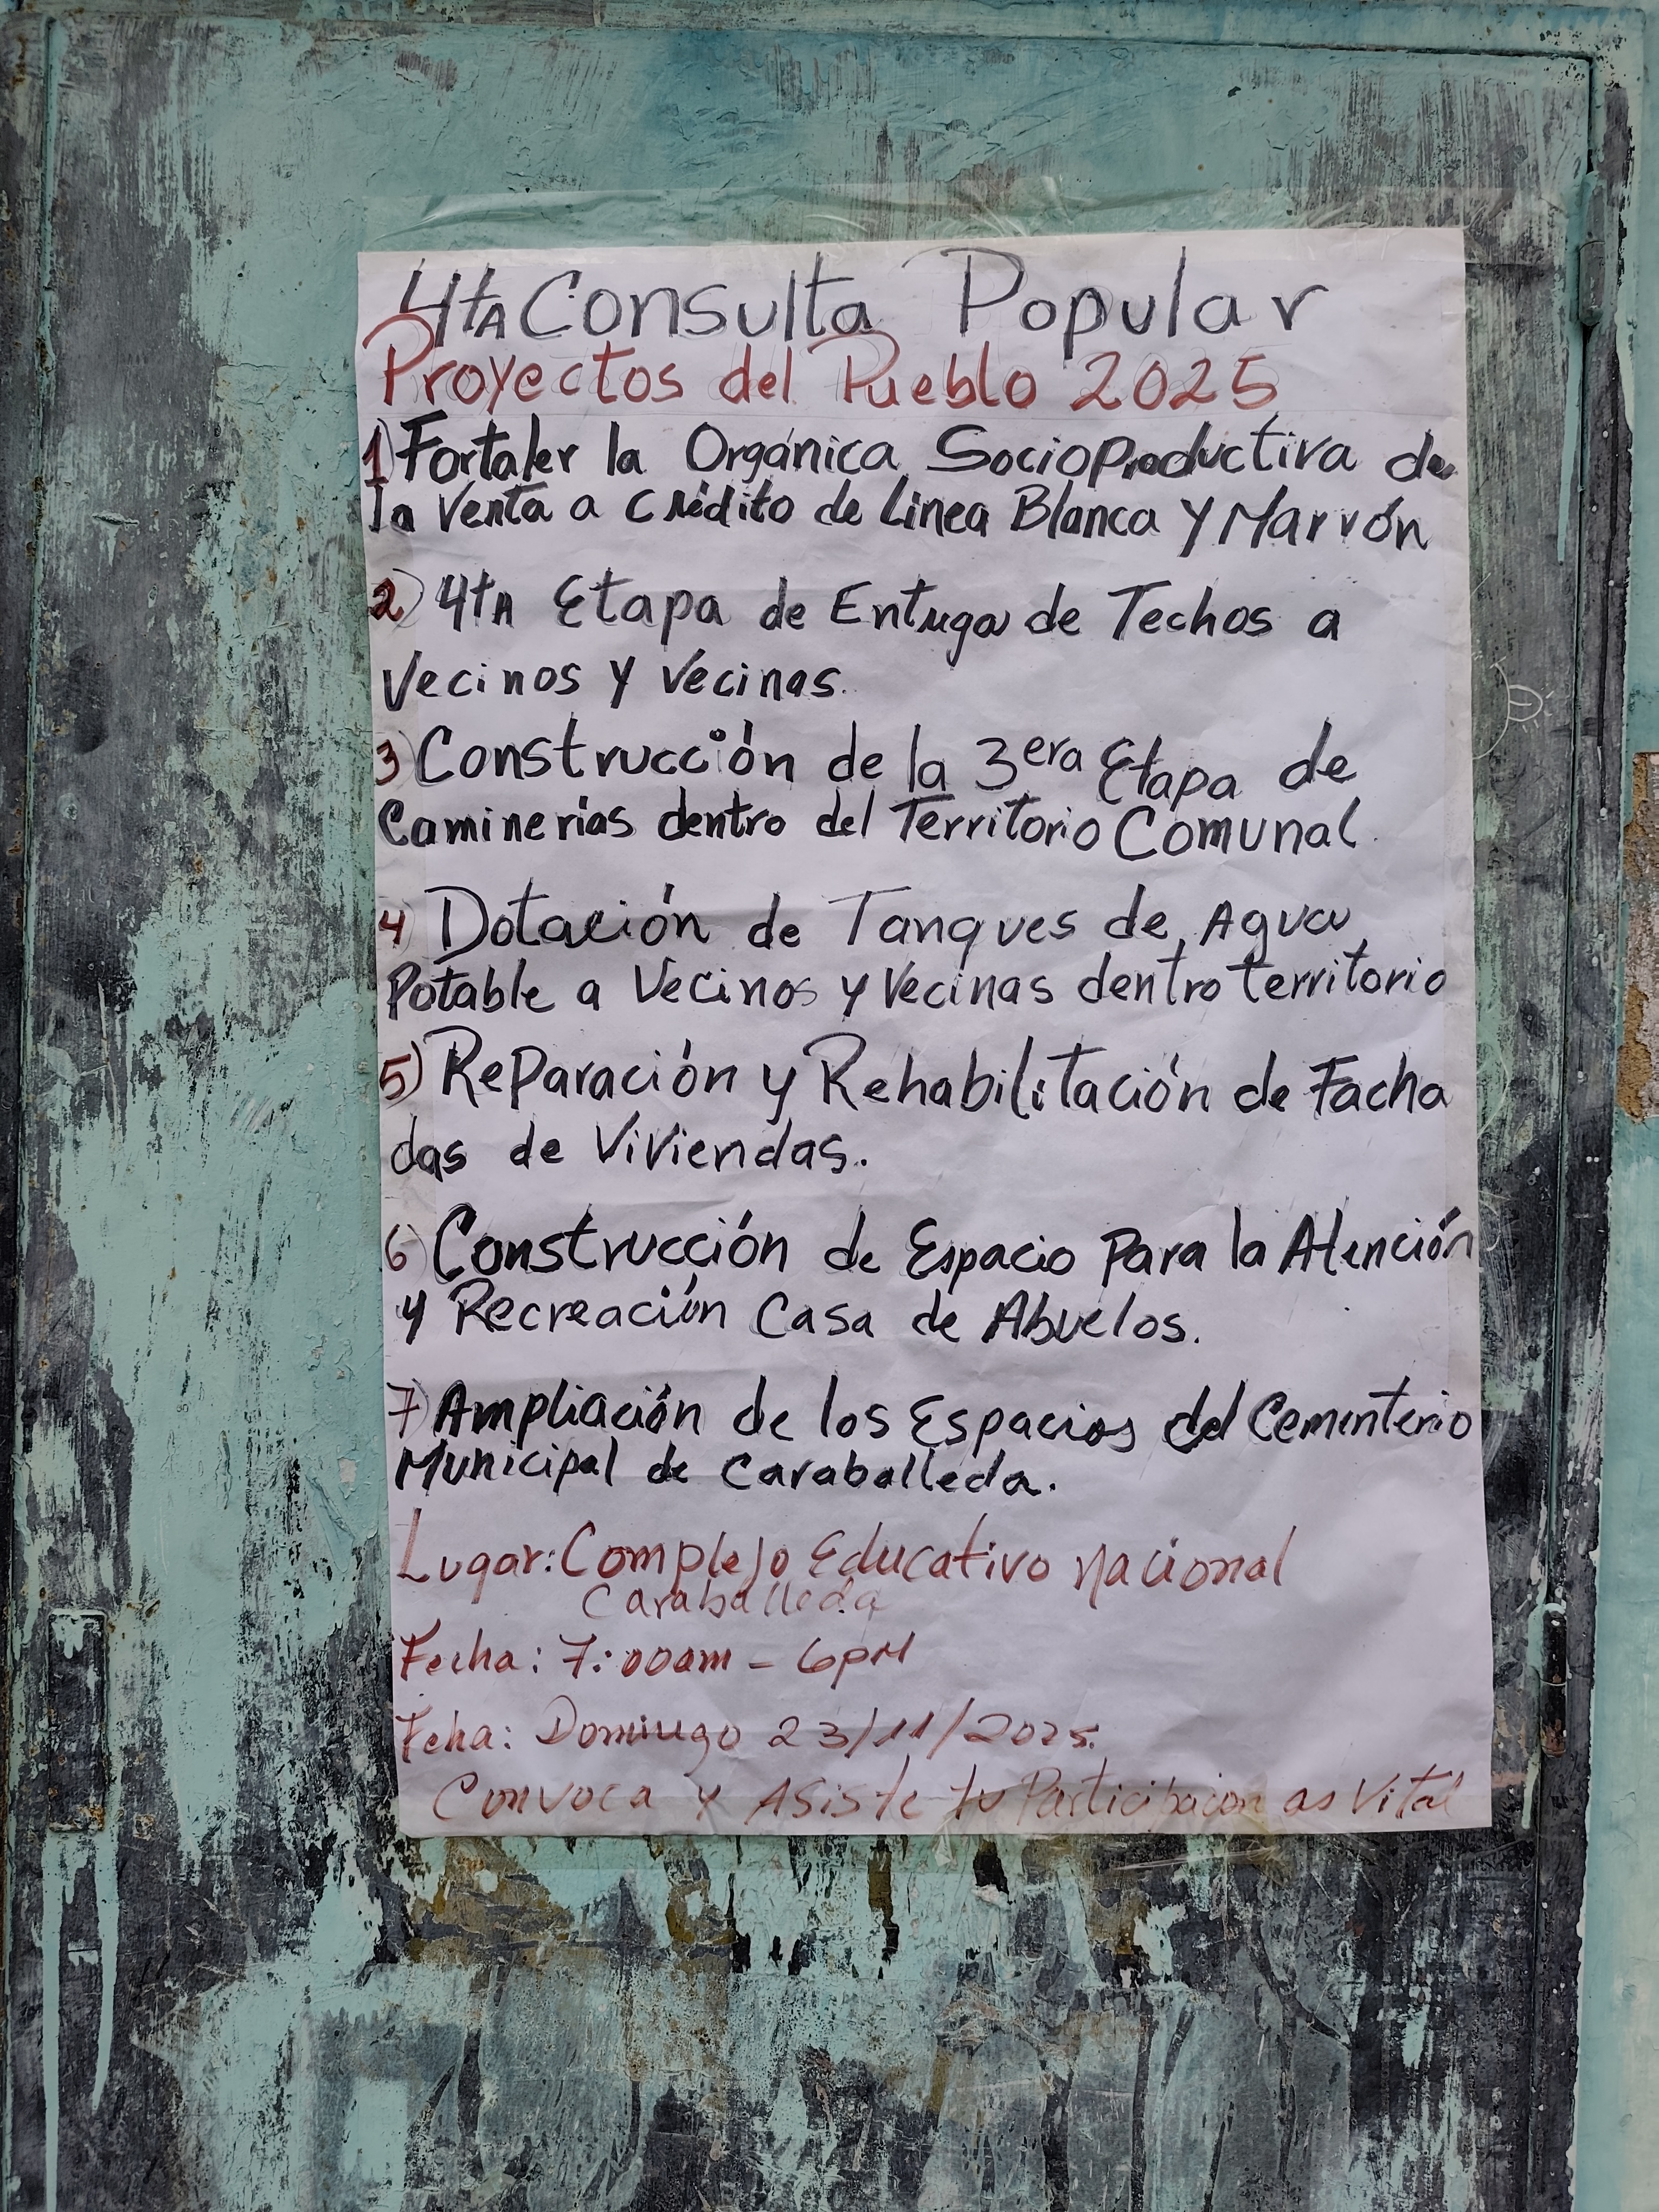 4tA Consulta Popular
Proyectos del Pueblo 2025
1) Fortaler la Orgánica Socioproductiva de
la Venta a crédito de Linea Blanca y Marrón
2) 4tA Etapa de Entrega de Techos a
Vecinos y Vecinas.
3) Construcción de la 3era Etapa de
Caminerias dentro del Territorio Comunal.
4) Dotación de Tanques de Agua
Potable a Vecinos y Vecinas dentro territorio
5) Reparación y Rehabilitación de Facha
das de Viviendas.
6) Construcción de Espacio Para la Atención
y Recreación Casa de Abuelos.
7) Ampliación de los Espacios del Cementerio
Municipal de Caraballeda.
Lugar: Complejo Educativo Nacional
Caraballeda
Fecha: 7:00am - 6PM
Feha: Domingo 23/11/2025.
Convoca y Asiste tu Participacion as Vital